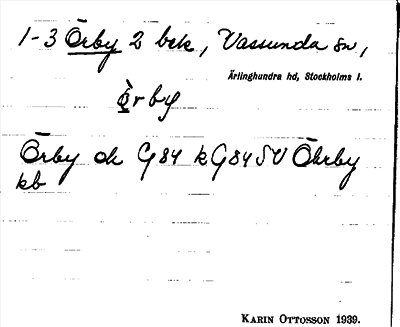 1-3 Örby 2 bek, Vassunda sn,
Ärlinghundra hd, Stockholms l.
ö̀rby
Örby ek G84 kG84SV Öhrby
kb
KARIN OTTOSSON 1939.